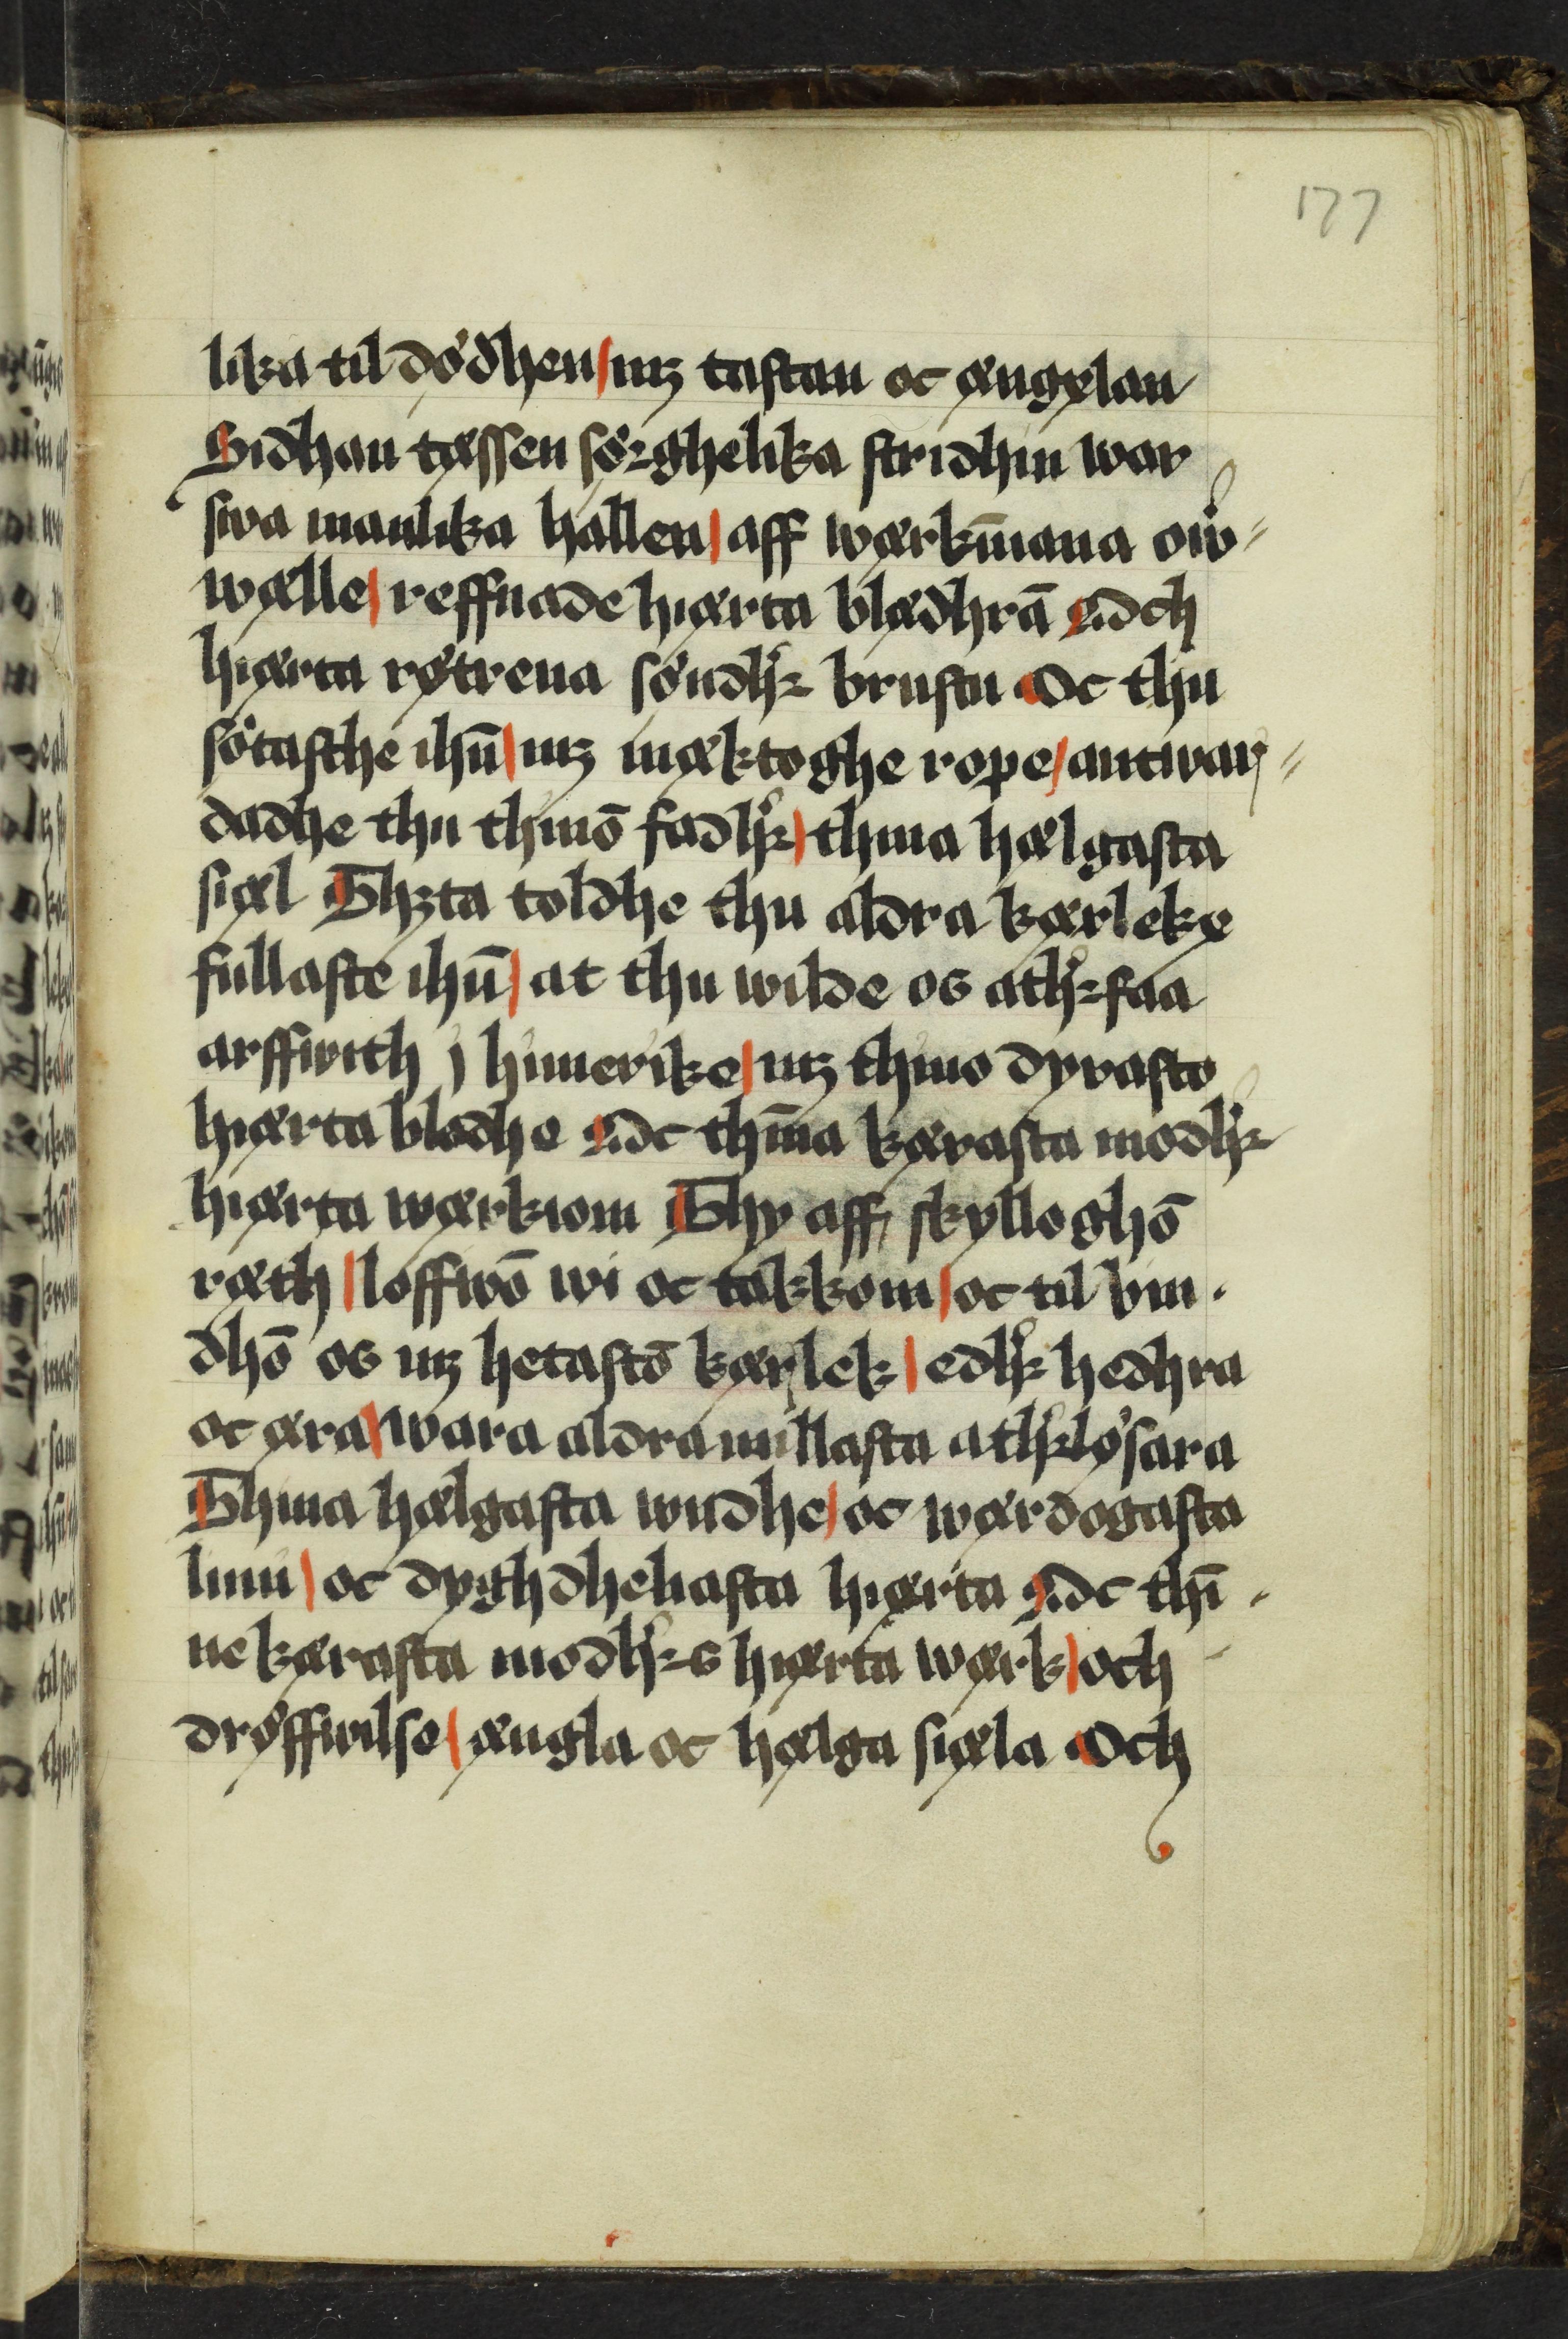 177
lika til dödhen / mz tastan oc ængxlan
Sidhan tæssen sörghelika stridhin war
swa manlika hallen / aff wærkm̄ana ow̉=
wælle / reffnade hiærta blædhrā Och
hiærta røtrena söndh̉ brustu Oc thu
sötasthe ihū / mz mæktoghe rope / antwar=
dadhe thu thinō fadh̉ / thina hælgasta
siæl Thzta toldhe thu aldra kærlekx
fullaste ihū / at thu wilde os ath̉ faa
arffwith j himerike / mz thino dyrasto
hiærta blodhe Oc thīna kærasta modh̉
hiærta wærkiom Thy aff skylloghō
ræth / loffwō wi oc takkom / oc til bin
dhō os mz hetastō kærlek / edh̉ hedhra
oc æra / wara aldra millasta ath̉lösara
Thina hælgasta wndhe / oc wærdogasta
limi / oc dyghdheliasta hiærta Oc thī
ne kærasta modh̉s hiærta wærk / och
dröffwilse / ængla oc hælga siæla Och